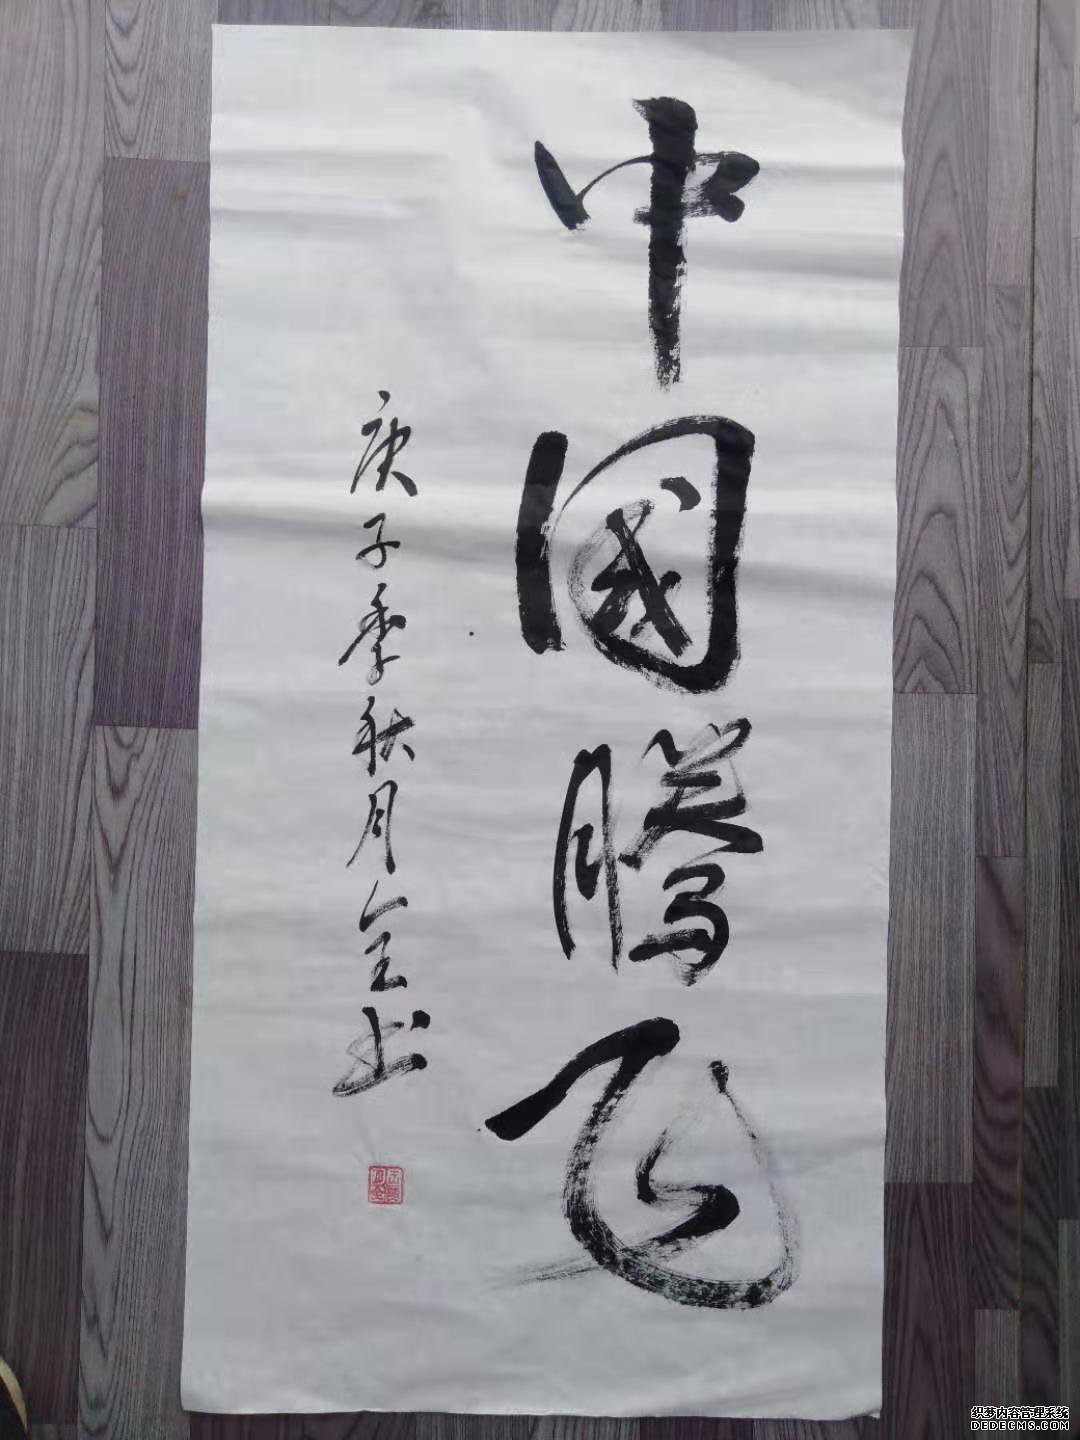 中國騰飞
庚子季秋月全书
织梦内容管理系统
DEDECMS.COM